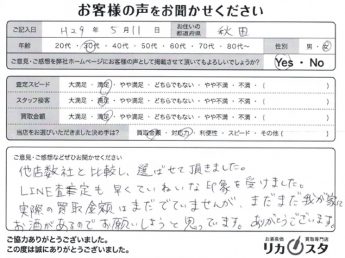 お客様の声をお聞かせください
ご記入日 H29年 5月11日 お住いの都道府県 秋田
年齢 20代・30代・40代・50代・60代・70代・80代〜 性別 男・女
ご意見・ご感想を弊社ホームページにお客様の声として掲載させて頂いてもよろしいでしょうか? Yes・No
査定スピード 大満足・満足・やや満足・どちらでもない・やや不満・不満（ ）
スタッフ接客 大満足・満足・やや満足・どちらでもない・やや不満・不満（ ）
買取金額 大満足・満足・やや満足・どちらでもない・やや不満・不満（ ）
当店をお選びいただきました決め手は? 買取金額・対応力・利便性・スピード・その他（ ）
ご意見・ご感想などぜひお聞かせください
他店数社と比較し、選ばせて頂きました。
LINE査定も早くていねいな印象を受けました。
実際の買取金額はまだでていませんが、まだまだ我が家に
お酒があるのでお願いしようと思っています。ありがとうございます。
ご協力ありがとうございました。
この度は誠にありがとうございました。
お酒高価買取専門店
リカスタ